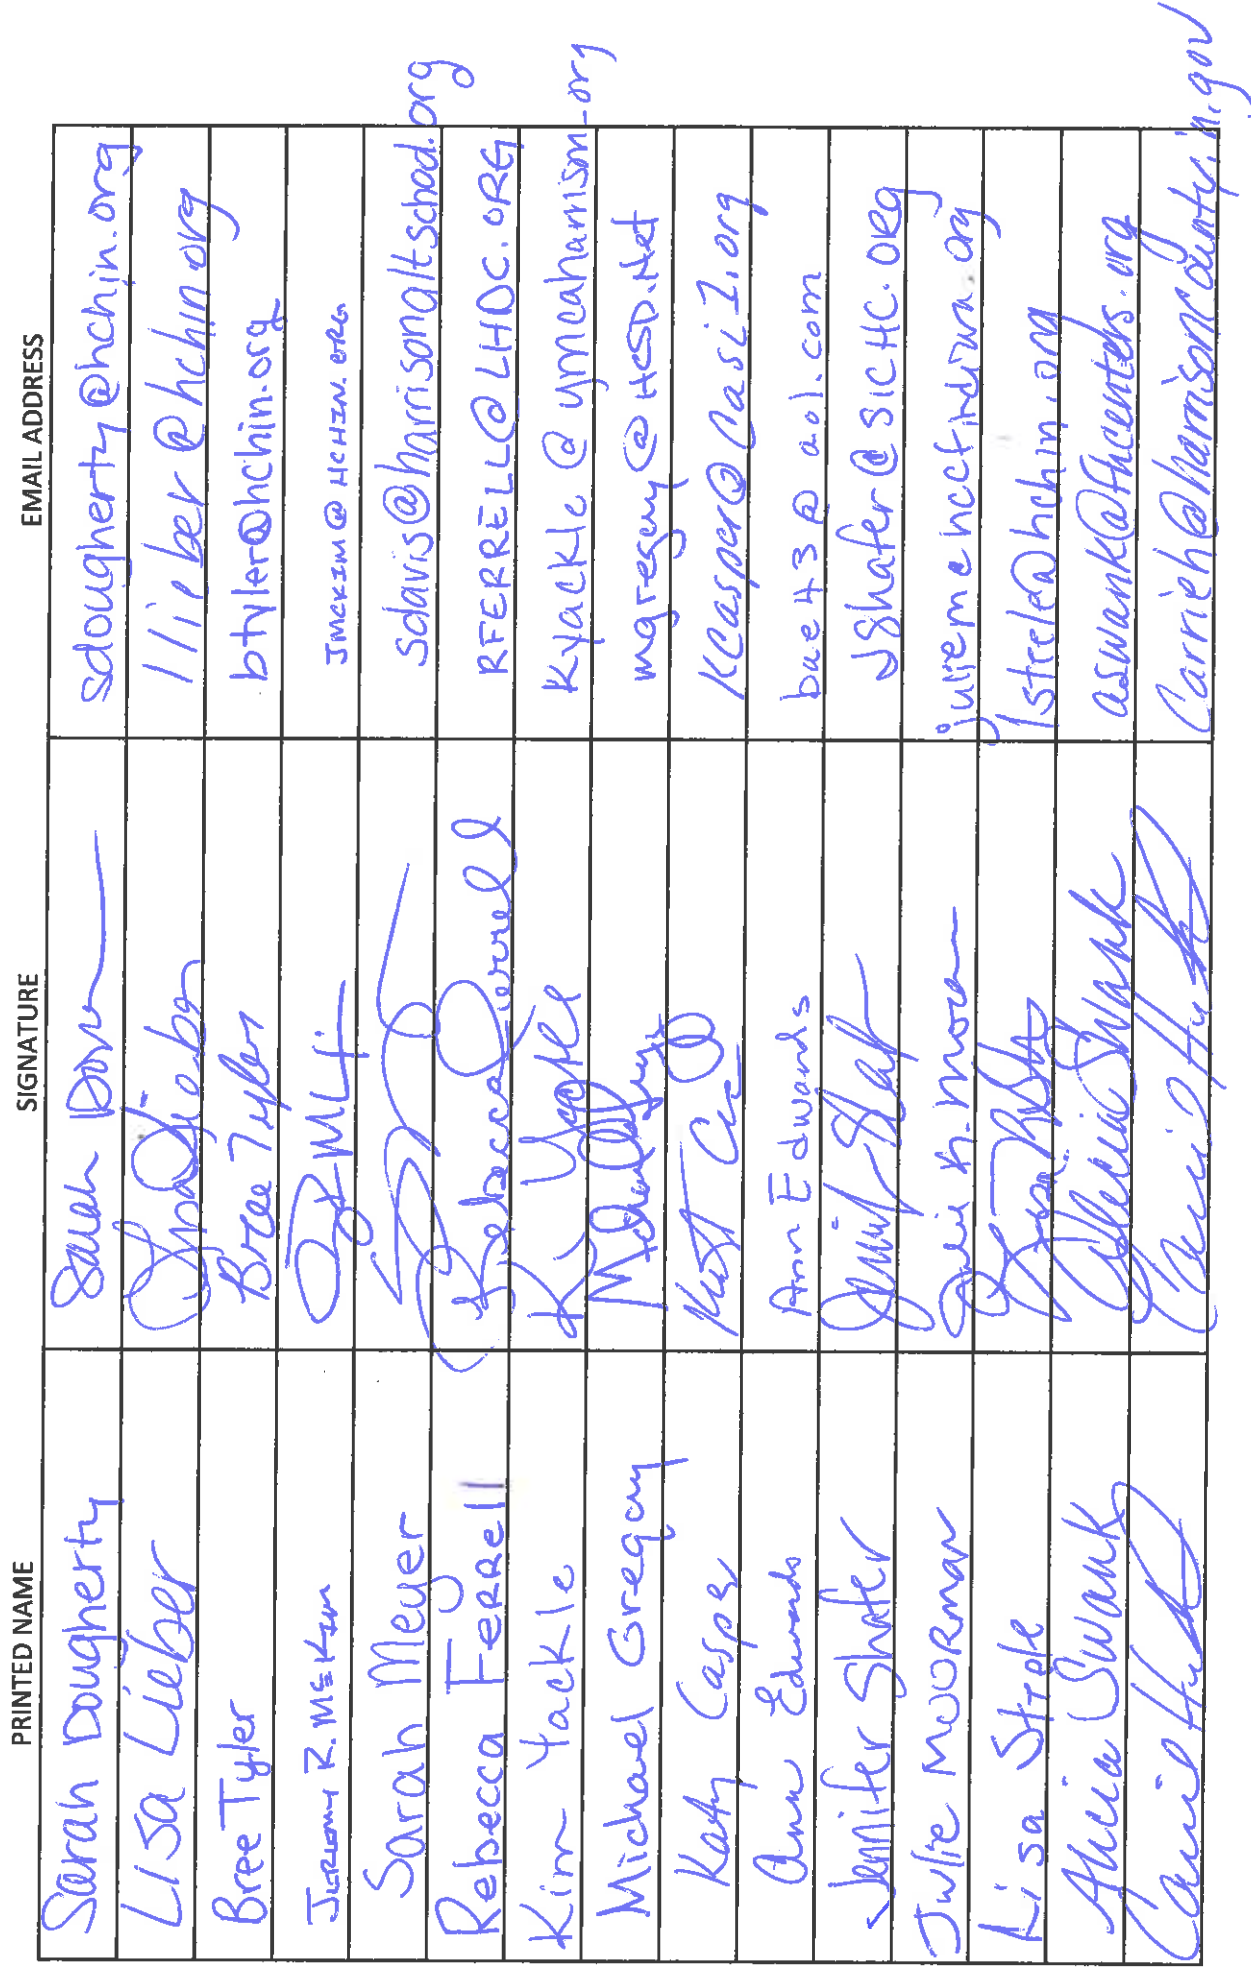 PRINTED NAME SIGNATURE EMAIL ADDRESS
Sarah Dougherty Sarah sdougherty@hchin.org
Lisa Lieber Lisa Lieber llieber@hchin.org
Bree Tyler Bree Tyler btyler@hchin.org
Jeremy R. McKim JMcKIM@HCHIN.ORG
Sarah Meyer sdavis@harrisonaltschool.org
Rebecca FERRell Rebecca Ferrell RFERRELL@LHDC.ORG
Kim Yackle K Yackle Kyackle@ymcaharrison.org
Michael Gregory mgregory@HCSD.Net
Katy Casper Kcasper@Casi1.org
Ann Edwards Ann Edwards bae43@aol.com
Jennifer Shafer JShafer@SICHC.ORG
Julie MOORMAN juliem@hccfindiana.org
Lisa Steele lsteele@hchin.org
Alicia Swank Alicia Swank aswank@fhcenters.org
Carrie Carrie Carrieh@harrisoncounty.in.gov